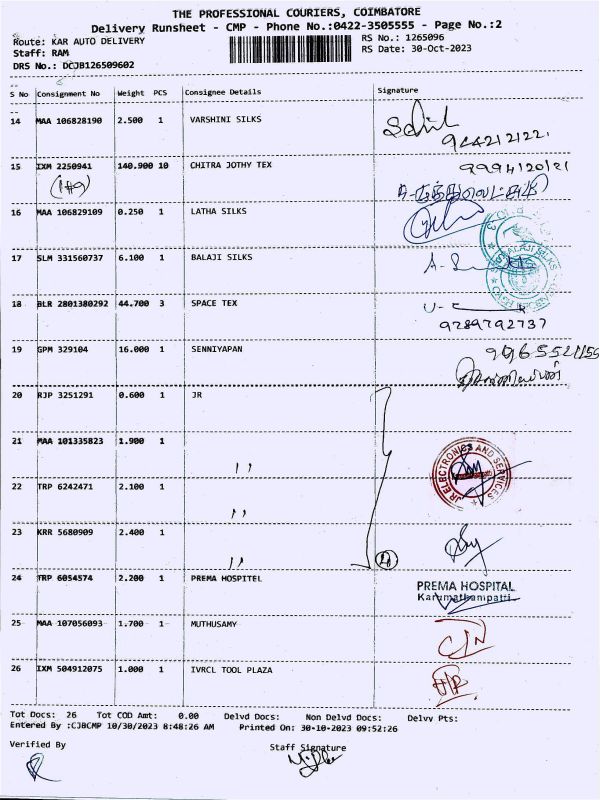 THE PROFESSIONAL COURIERS, COIMBATORE
Delivery Runsheet - CMP - Phone No.:0422-3505555 - Page No.:2
Route: KAR AUTO DELIVERY
RS No.: 1265096
Staff: RAM
RS Date: 30-Oct-2023
DRS No.: DCJB126509602
S No Consignment No Weight PCS Consignee Details Signature
14 MAA 106828190 2.500 1 VARSHINI SILKS
15 IXM 2250941 140.900 10 CHITRA JOTHY TEX
16 MAA 106829109 0.250 1 LATHA SILKS
17 SLM 331560737 6.100 1 BALAJI SILKS
BALAJI SILKS
18 BLR 2801380292 44.700 3 SPACE TEX
9789792737
19 GPM 329104 16.000 1 SENNIYAPAN
20 RJP 3251291 0.600 1 JR
21 MAA 101335823 1.900 1 ,,
JR ELECTRONICS AND SERVICES
22 TRP 6242471 2.100 1 ,,
23 KRR 5680909 2.400 1 ,,
24 TRP 6054574 2.200 1 PREMA HOSPITEL
PREMA HOSPITAL
Karumathampatti
25 MAA 107056093 1.700 1 MUTHUSAMY
26 IXM 504912075 1.000 1 IVRCL TOOL PLAZA
Tot Docs: 26 Tot COD Amt: 0.00 Delvd Docs: Non Delvd Docs: Delvv Pts:
Entered By :CJBCMP 10/30/2023 8:48:26 AM Printed On: 30-10-2023 09:52:26
Verified By
Staff Signature